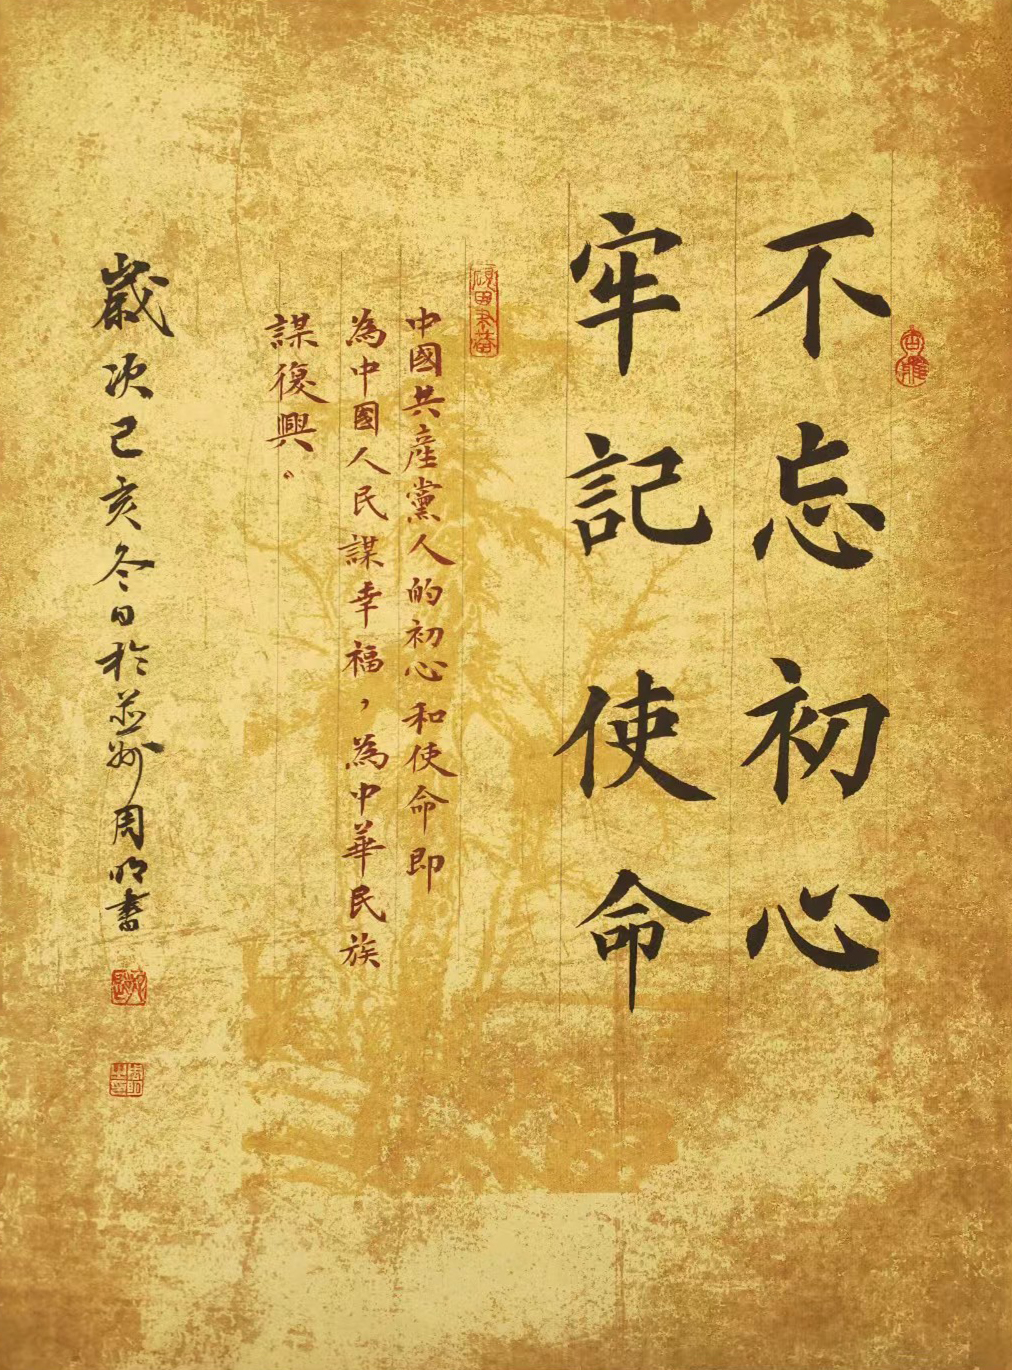 不忘初心
牢記使命
中國共產黨人的初心和使命即
為中國人民謀幸福，為中華民族
謀復興。
歲次己亥冬日於並州周明書